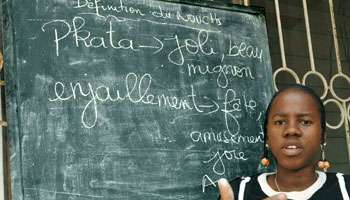 Définition du Nouchi
Pkata → joli beau
mignon
enjaillement → fête
amusement
joie
A